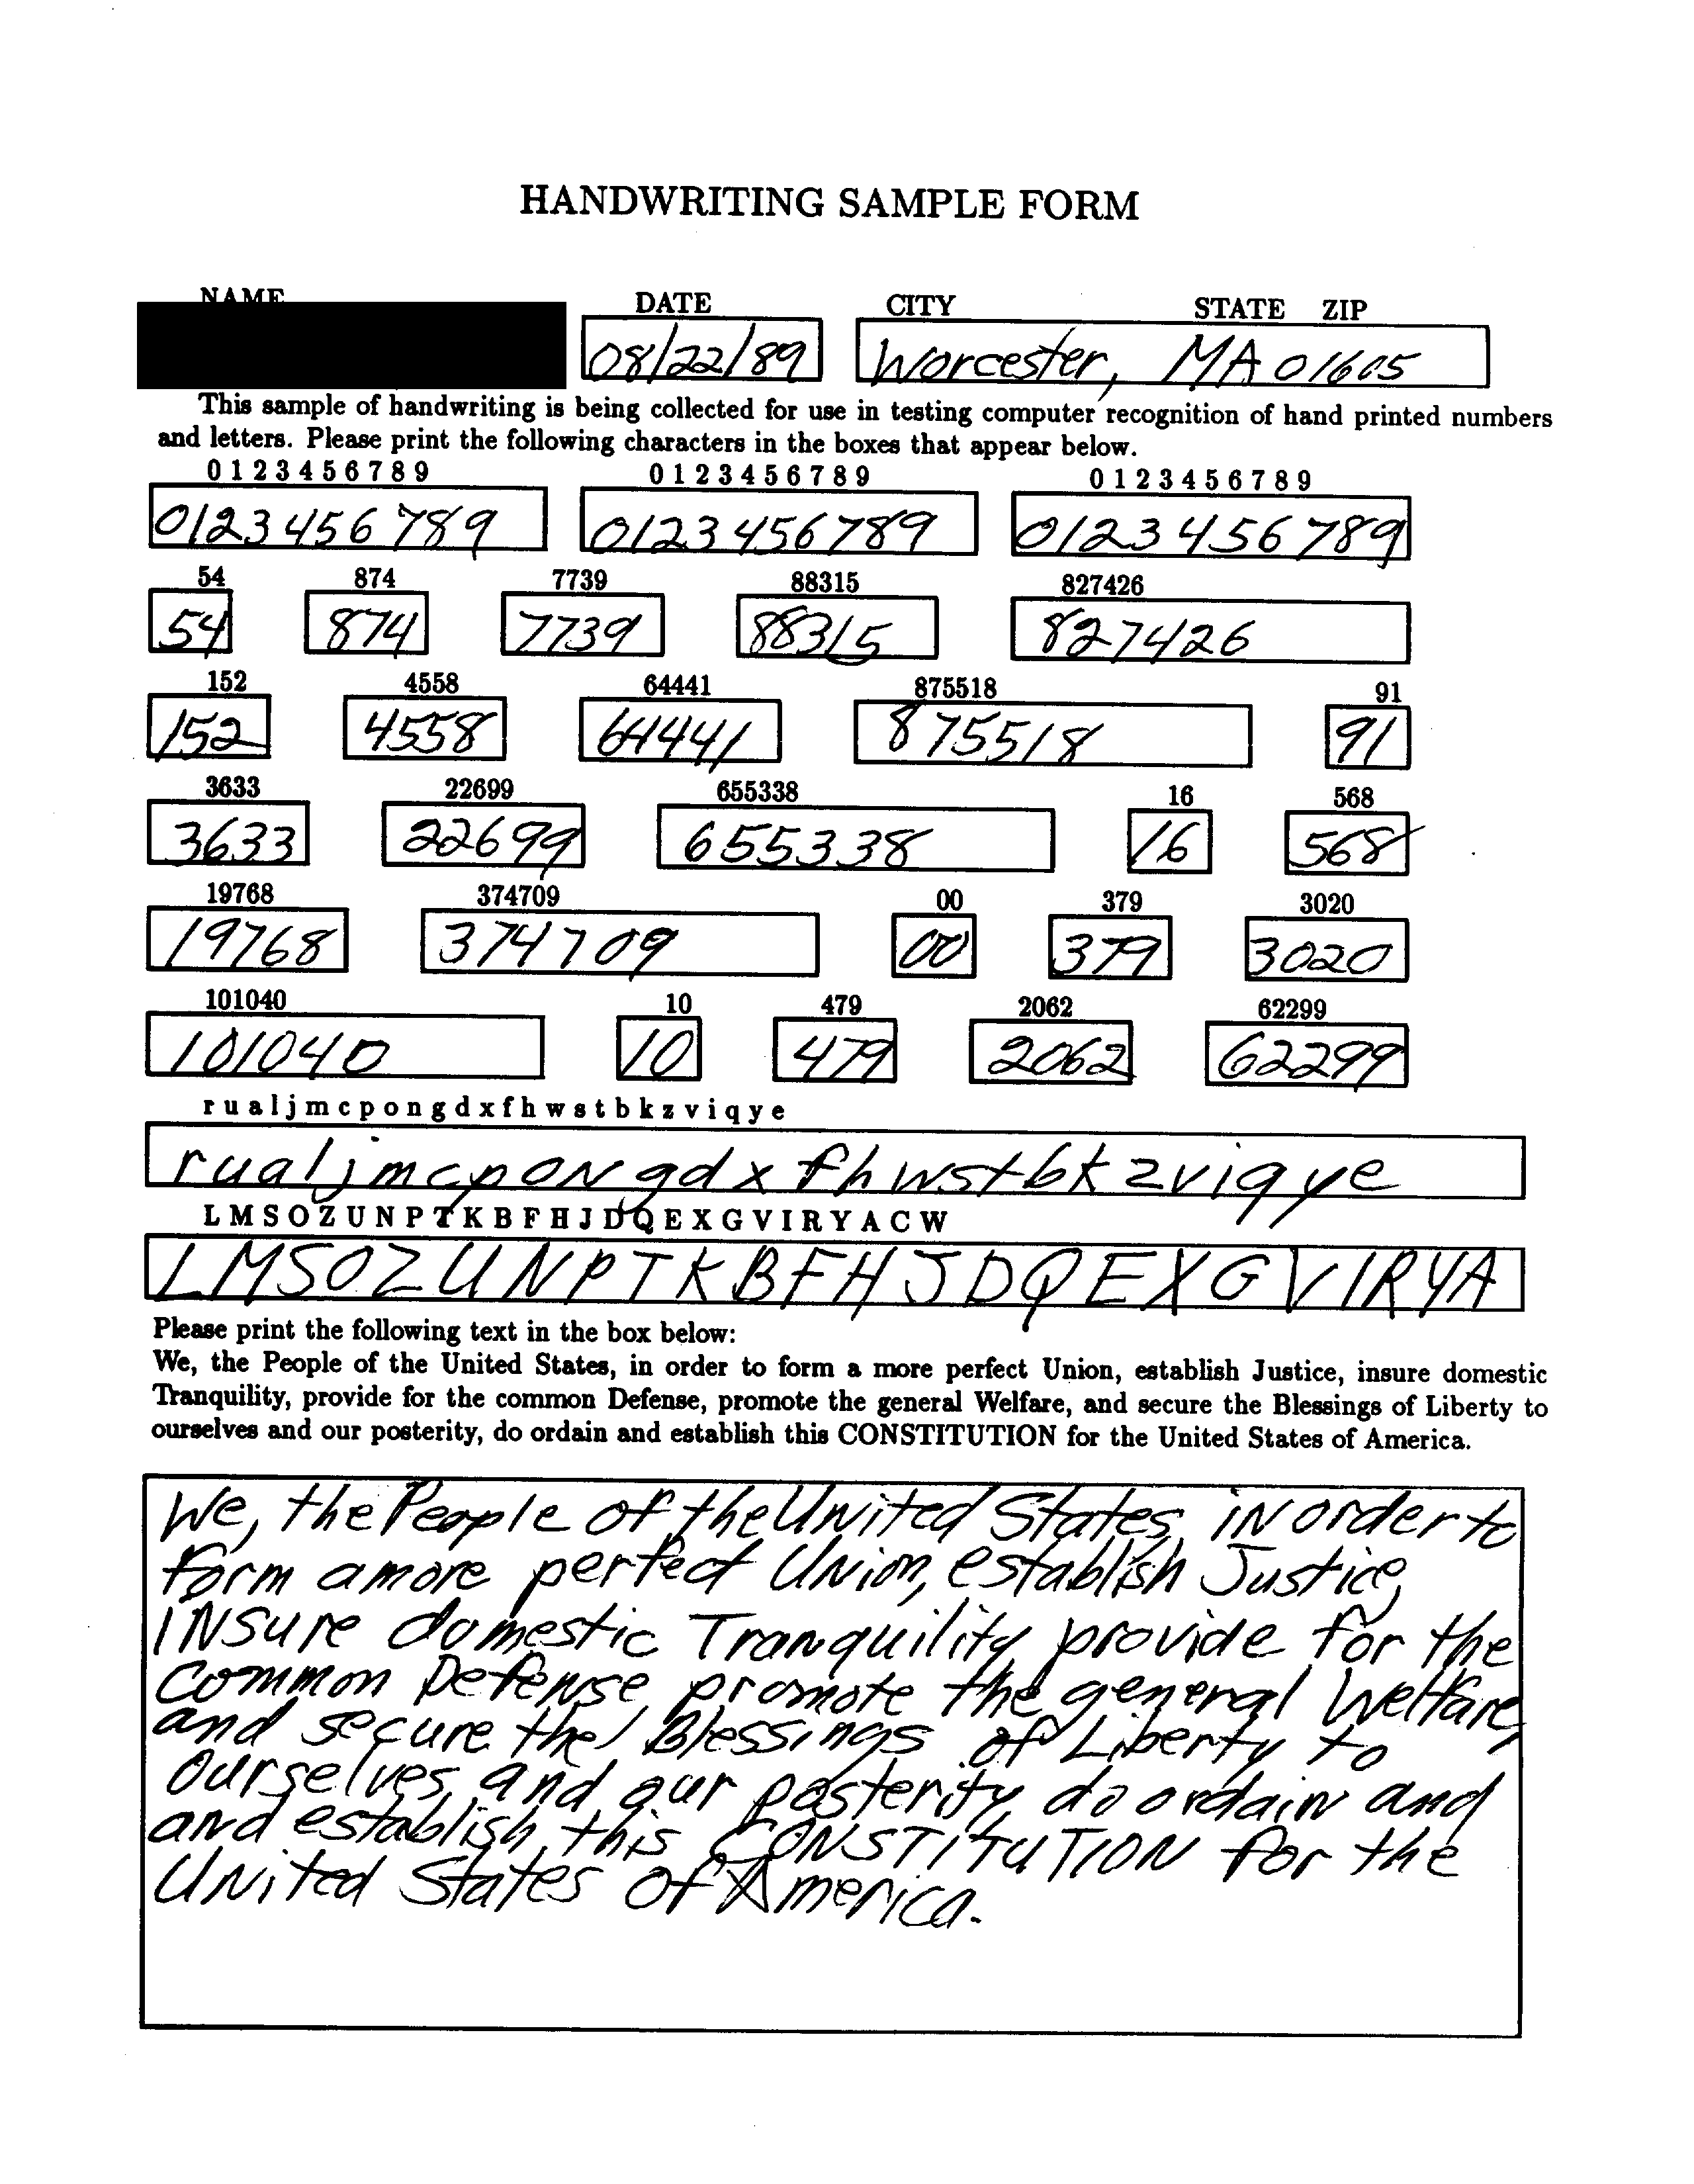 HANDWRITING SAMPLE FORM
NAME DATE CITY STATE ZIP
08/22/89 Worcester, MA 01605
This sample of handwriting is being collected for use in testing computer recognition of hand printed numbers
and letters. Please print the following characters in the boxes that appear below.
0 1 2 3 4 5 6 7 8 9 0 1 2 3 4 5 6 7 8 9 0 1 2 3 4 5 6 7 8 9
0123456789 0123456789 0123456789
54 874 7739 88315 827426
54 874 7739 88315 827426
152 4558 64441 875518 91
152 4558 64441 875518 91
3633 22699 655338 16 568
3633 22699 655338 16 568
19768 374709 00 379 3020
19768 374709 00 379 3020
101040 10 479 2062 62299
101040 10 479 2062 62299
r u a l j m c p o n g d x f h w s t b k z v i q y e
rualjmcpoNgdxfhwstbkzviqye
L M S O Z U N P T K B F H J D Q E X G V I R Y A C W
LMSOZUNPTKBFHJDQEXGVIRYA
Please print the following text in the box below:
We, the People of the United States, in order to form a more perfect Union, establish Justice, insure domestic
Tranquility, provide for the common Defense, promote the general Welfare, and secure the Blessings of Liberty to
ourselves and our posterity, do ordain and establish this CONSTITUTION for the United States of America.
We, the People of the United States, in order to
form a more perfect Union, establish Justice,
INSure domestic Tranquility, provide for the
common Defense, promote the general Welfare,
and secure the Blessings of Liberty to
ourselves and our posterity, do ordain and
and establish this CONSTITUTION for the
United States of America.